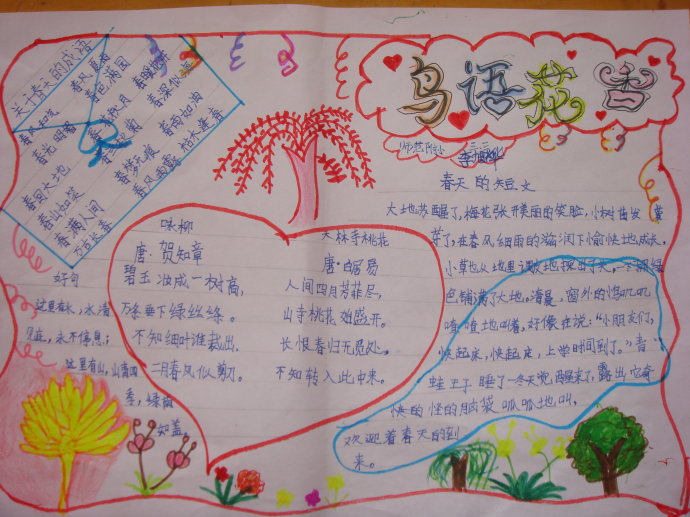 鸟语花香
关于春天的成语
春风夏雨
春色满园
春暖花开
春深似海
春雨如油
枯木逢春
春风和气
春光明媚
春回大地
春山如笑
春满人间
万古长春
春风雨露
师范附小
春天的短文
大地苏醒了,梅花张开美丽的笑脸,小树苗发
芽了,在春风细雨的滋润下愉快地成长。
小草也从地里
色铺满了大地。清晨,窗外的鸟叽叽
喳喳地叫着。好像在说:“小朋友们,
快起床,快起床,上学时间到了。”青
蛙王子睡了一冬天觉,醒来了,露出它奇
快的怪的脑袋呱呱地叫,
欢迎着春天的到
来。
咏柳
唐·贺知章
碧玉妆成一树高,
万条垂下绿丝绦。
不知细叶谁裁出,
二月春风似剪刀。
大林寺桃花
唐·白居易
人间四月芳菲尽,
山寺桃花始盛开。
长恨春归无觅处,
不知转入此中来。
好句
这里有水,水清
见底,永不停息;
这里有山,山青四
季,绿树
如盖。